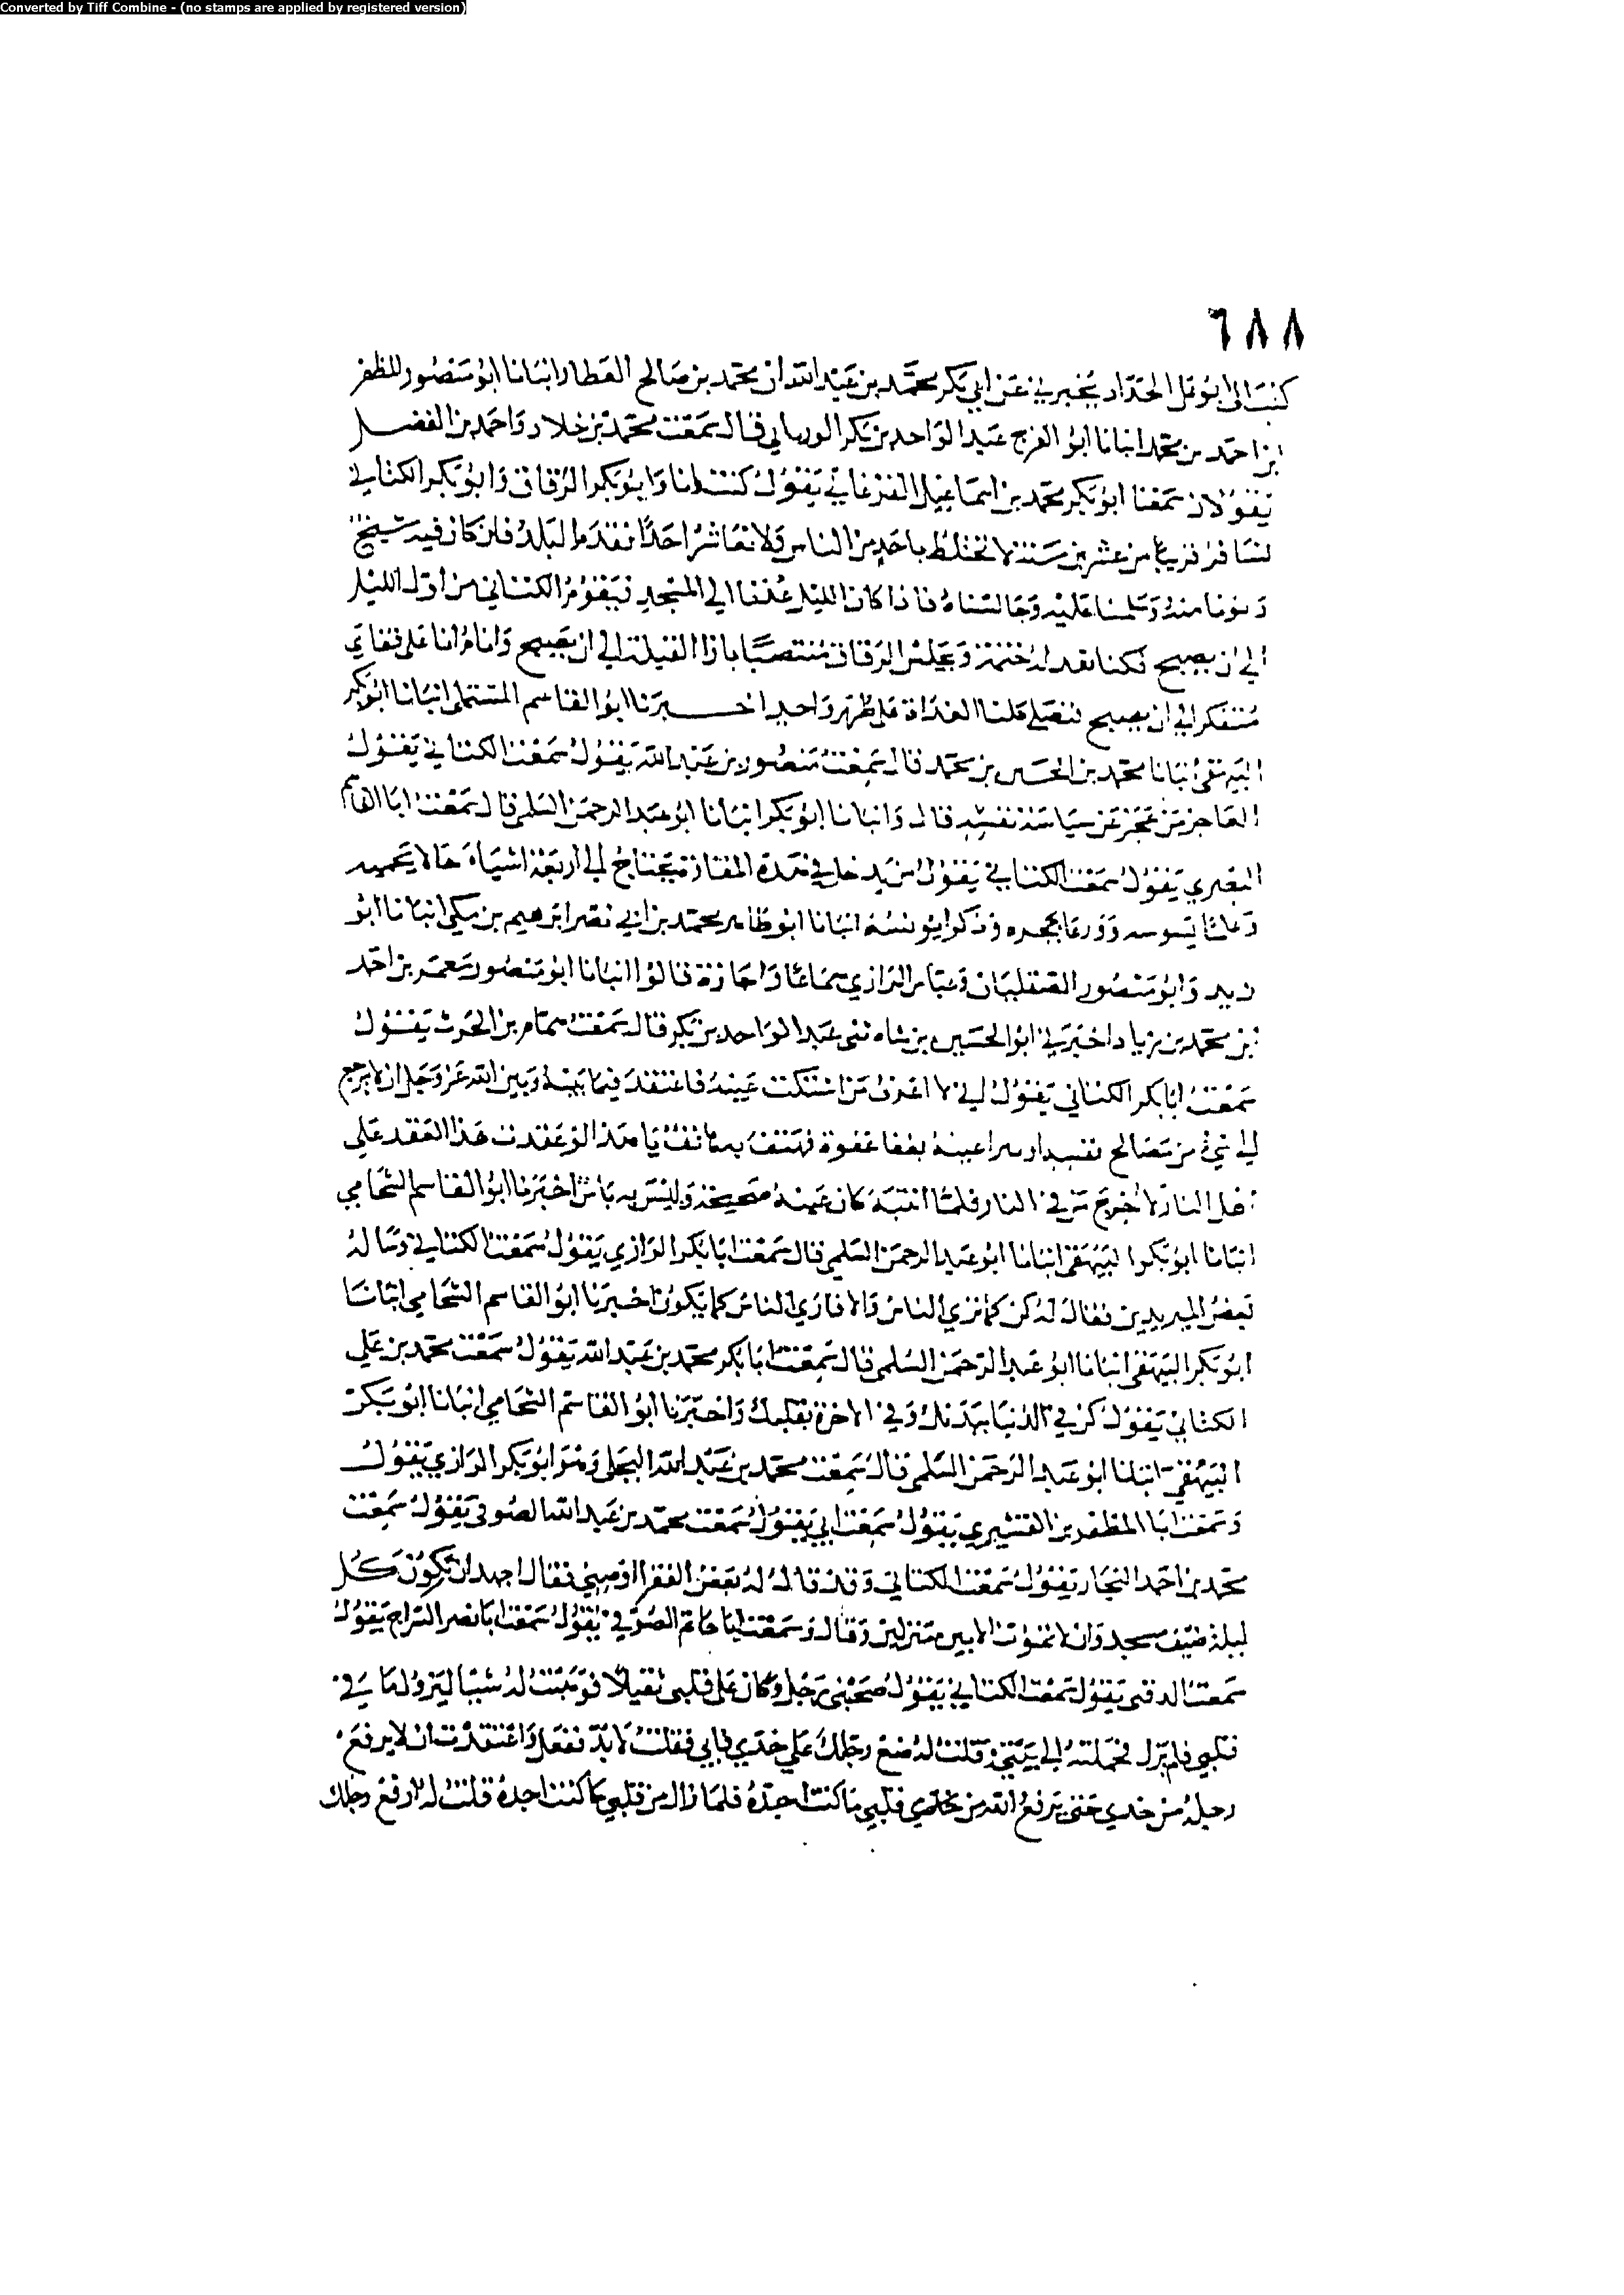 Converted by Tiff Combine - (no stamps are applied by registered version)
٦٨٨
كتب الى ابو علي الحداد يخبرني عن ابي بكر محمد بن عبد الله ان محمد بن صالح العطار انبانا ابو منصور المظفر
ابن احمد بن محمد انبانا ابو الفرج عبد الواحد بن بكر الورثاني قال سمعت محمد بن خلاد واحمد بن الفضل
يقولان سمعنا ابو بكر محمد بن اسماعيل الفرغاني يقول كنت انا وابو بكر الزقاق وابو بكر الكتاني
نسافر قريبا من عشرين سنة لا نختلط باحد من الناس ولا نعاشر احدا نقدم البلد فان كان فيه شيخ
دنونا منه وسلمنا عليه وجالسناه فاذا كان الليل عدنا الي المسجد فيقوم الكتاني من اول الليل
الي ان يصبح فكنا نعد له ختمة ويجلس الزقاق منتصبا بازا القبلة الي ان يصبح وانام انا على قفاي
متفكرا الي ان يصبح فنصلي كلنا الغداة على طهر واحد اخبرنا ابو القاسم المستملي انبانا ابو بكر
البيهقي انبانا محمد بن الحسين بن محمد قال سمعت منصور بن عبد الله يقول سمعت الكتاني يقول
العاجز من عجز عن سياسة نفسه قال وانبانا ابو بكر انبانا ابو عبد الرحمن السلمي قال سمعت ابا القاسم
البصري يقول سمعت الكتاني يقول من يدخل في هذه المفازة يحتاج الي اربعة اشياء حالا يحميه
وعلما يسوسه وورعا يحجزه وذكرا يونسه انبانا ابو طاهر محمد بن ابي نصر ابرهيم بن مكي انبانا ابو
زيد وابو منصور الصقليان وعباس الرازي سماعا واجازة قالوا انبانا ابو منصور معمر بن احمد
بن محمد بن زياد اخبرني ابو الحسين بن شاه عبد الواحد بن بكر قال سمعت همام بن الحرث يقول
سمعت ابا بكر الكتاني يقول اني لا اعرف من اشتكت عينه فاعتقد فيما بينه وبين الله عز وجل ان لا يرجع
الي شي من مصالح نفسه او يبرا عينه فهتف به هاتف يا هذا لو عقدت هذا العقد علي
اهل النار لاخرج من في النار فلما انتبه كان عينه صحيحة وليس به باس اخبرنا ابو القاسم الشحامي
انبانا ابو بكر البيهقي انبانا ابو عبد الرحمن السلمي قال سمعت ابا بكر الرازي يقول سمعت الكتاني وساله
بعض المريدين فقال له كن كما تري الناس والا فاري الناس كما يكون اخبرنا ابو القاسم الشحامي انبانا
ابو بكر البيهقي انبانا ابو عبد الرحمن السلمي قال سمعت ابا بكر محمد بن عبد الله يقول سمعت محمد بن علي
الكتاني يقول كن في الدنيا ببدنك وفي الاخرة بقلبك واخبرنا ابو القاسم الشحامي انبانا ابو بكر
البيهقي انبانا ابو عبد الرحمن السلمي قال سمعت محمد بن عبد الله البجلي وهو ابو بكر الرازي يقول
وسمعت ابا المظفر بن القشيري يقول سمعت ابي يقول سمعت محمد بن عبد الله الصوفي يقول سمعت
محمد بن احمد النجار يقول سمعت الكتاني وقد قال له بعض الفقرا اوصني فقال اجهد ان تكون كل
ليلة ضيف مسجد وان لا تموت الا بين منزلين وقال وسمعت ابا حاتم الصوفي يقول سمعت ابا نصر السراج يقول
سمعت الدقي يقول سمعت الكتاني يقول صحبني رجل وكان على قلبي ثقيلا فوهبت له شيا ليزول ما في
قلبي فلم يزل فحملته الي بيتي وقلت له ضع رجلك علي خدي فابي فقلت لا بد ففعل واعتقدت ان لا يرفع
رجله من خدي حتى يرفع الله من قلبي ما كنت اجده فلما زال من قلبي ما كنت اجده قلت له ارفع رجلك